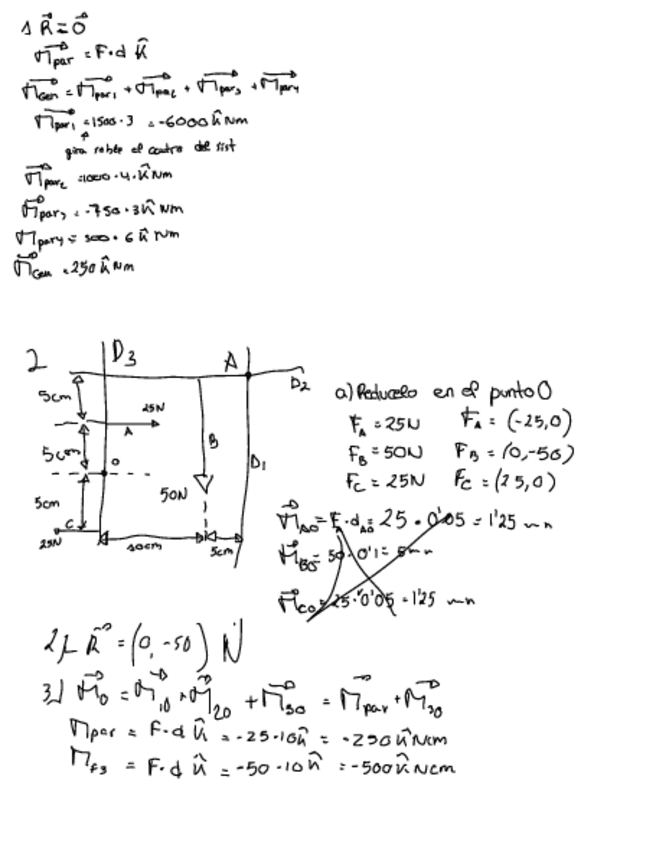 1 R = 0
M par = F·d k̂
M Gen = M par1 + M par2 + M par3 + M par4
M par1 = 1500·3 = -6000 k̂ Nm
gira sobre el centro del sist
M par2 = 1000·4·k̂ Nm
M par3 = -750·3 k̂ Nm
M par4 = 500·6 k̂ Nm
M Gen = 250 k̂ Nm
2 D3 A
D2
5cm
25N
A
5cm
B
D1
O
50N
5cm
C
25N
10cm 5cm
a) Reducelo en el punto O
FA = 25N FA = (-25,0)
FB = 50N FB = (0,-50)
FC = 25N FC = (25,0)
M AO = F·d AO = 25·0'05 = 1'25
M BO = 50·0'1 = 5
M CO = 25·0'05 = 1'25
2) R = (0, -50) N
3) M0 = M10 + M20 + M30 = M par + M30
M par = F·d k̂ = -25·10 k̂ = -250 k̂ Ncm
M F3 = F·d k̂ = -50·10 k̂ = -500 k̂ Ncm